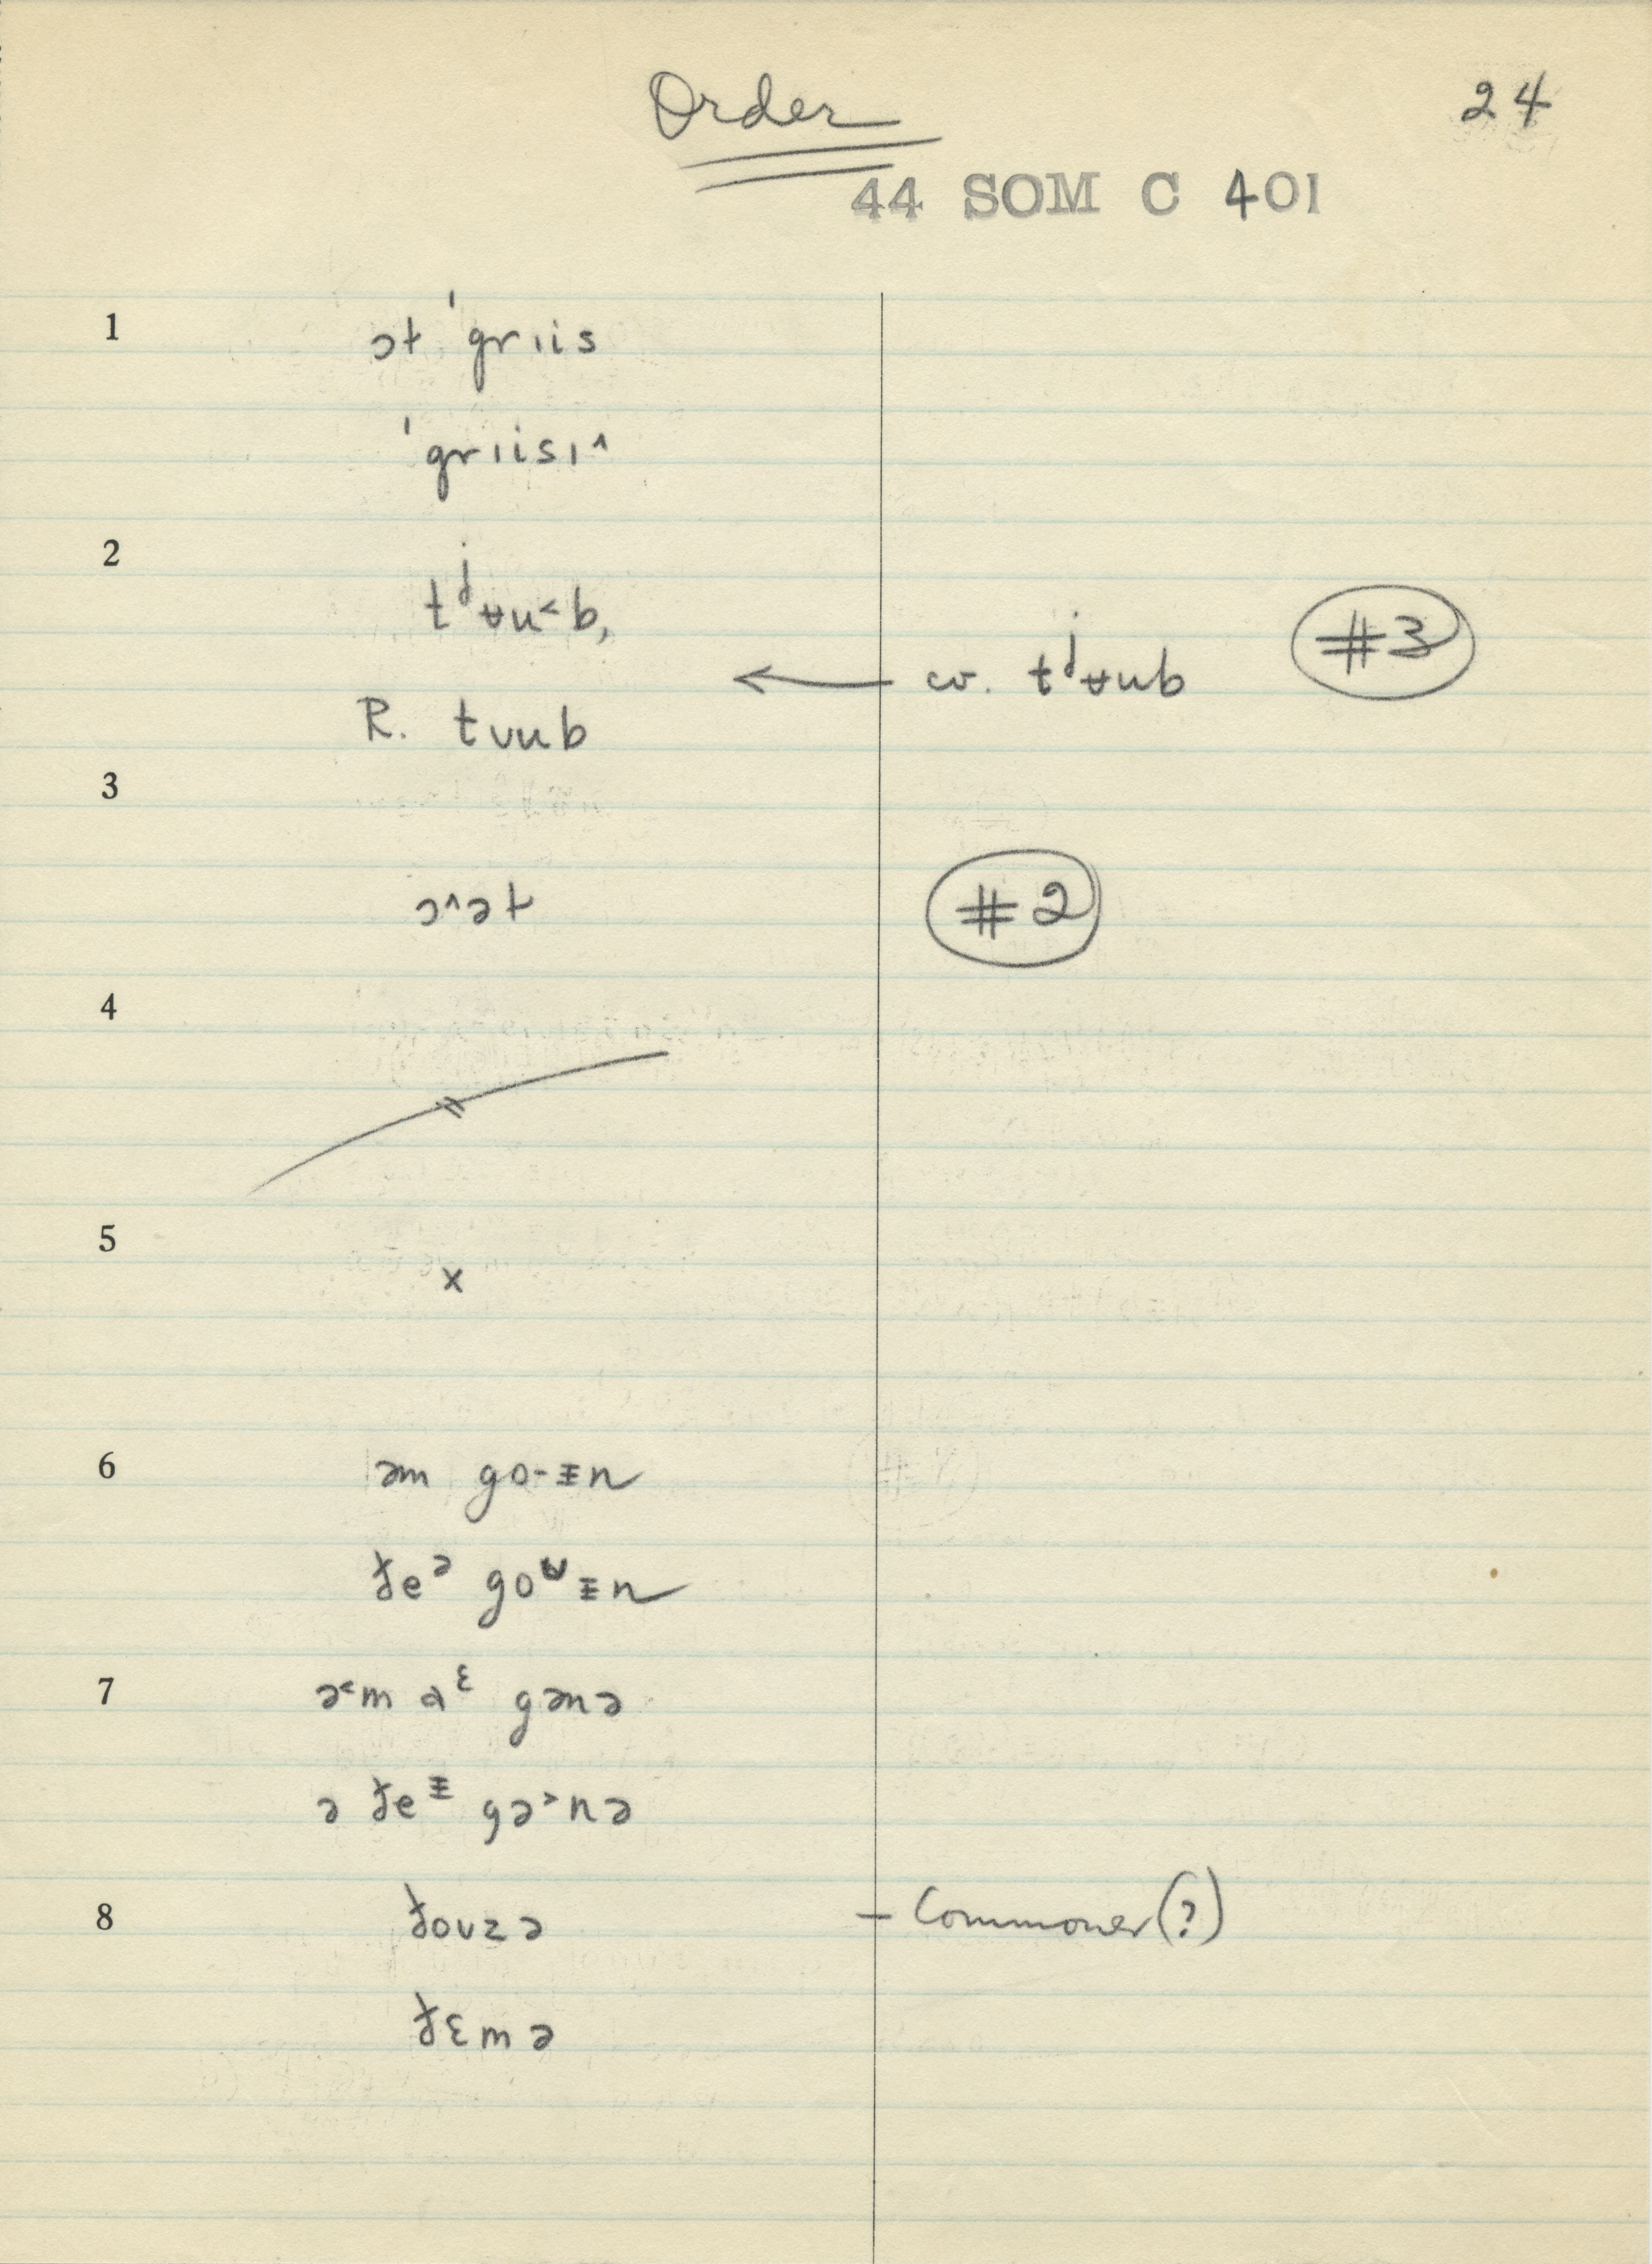 Order
24
44 SOM C 401
1 ɔt ˈgrɪis
ˈgrɪisɪ˄
2 tʲʉu˂b,
← cv. tʲʉub #3
R. tʊub
3
ɔ˄ət #2
4
5 x
6 əm go-ɪn
ɟeᵊ go ɪn
7 ə˂m aᵋ gənə
ə ɟe gə˃nə
8 ɟoʊzə – Commoner(?)
ɟɛmə